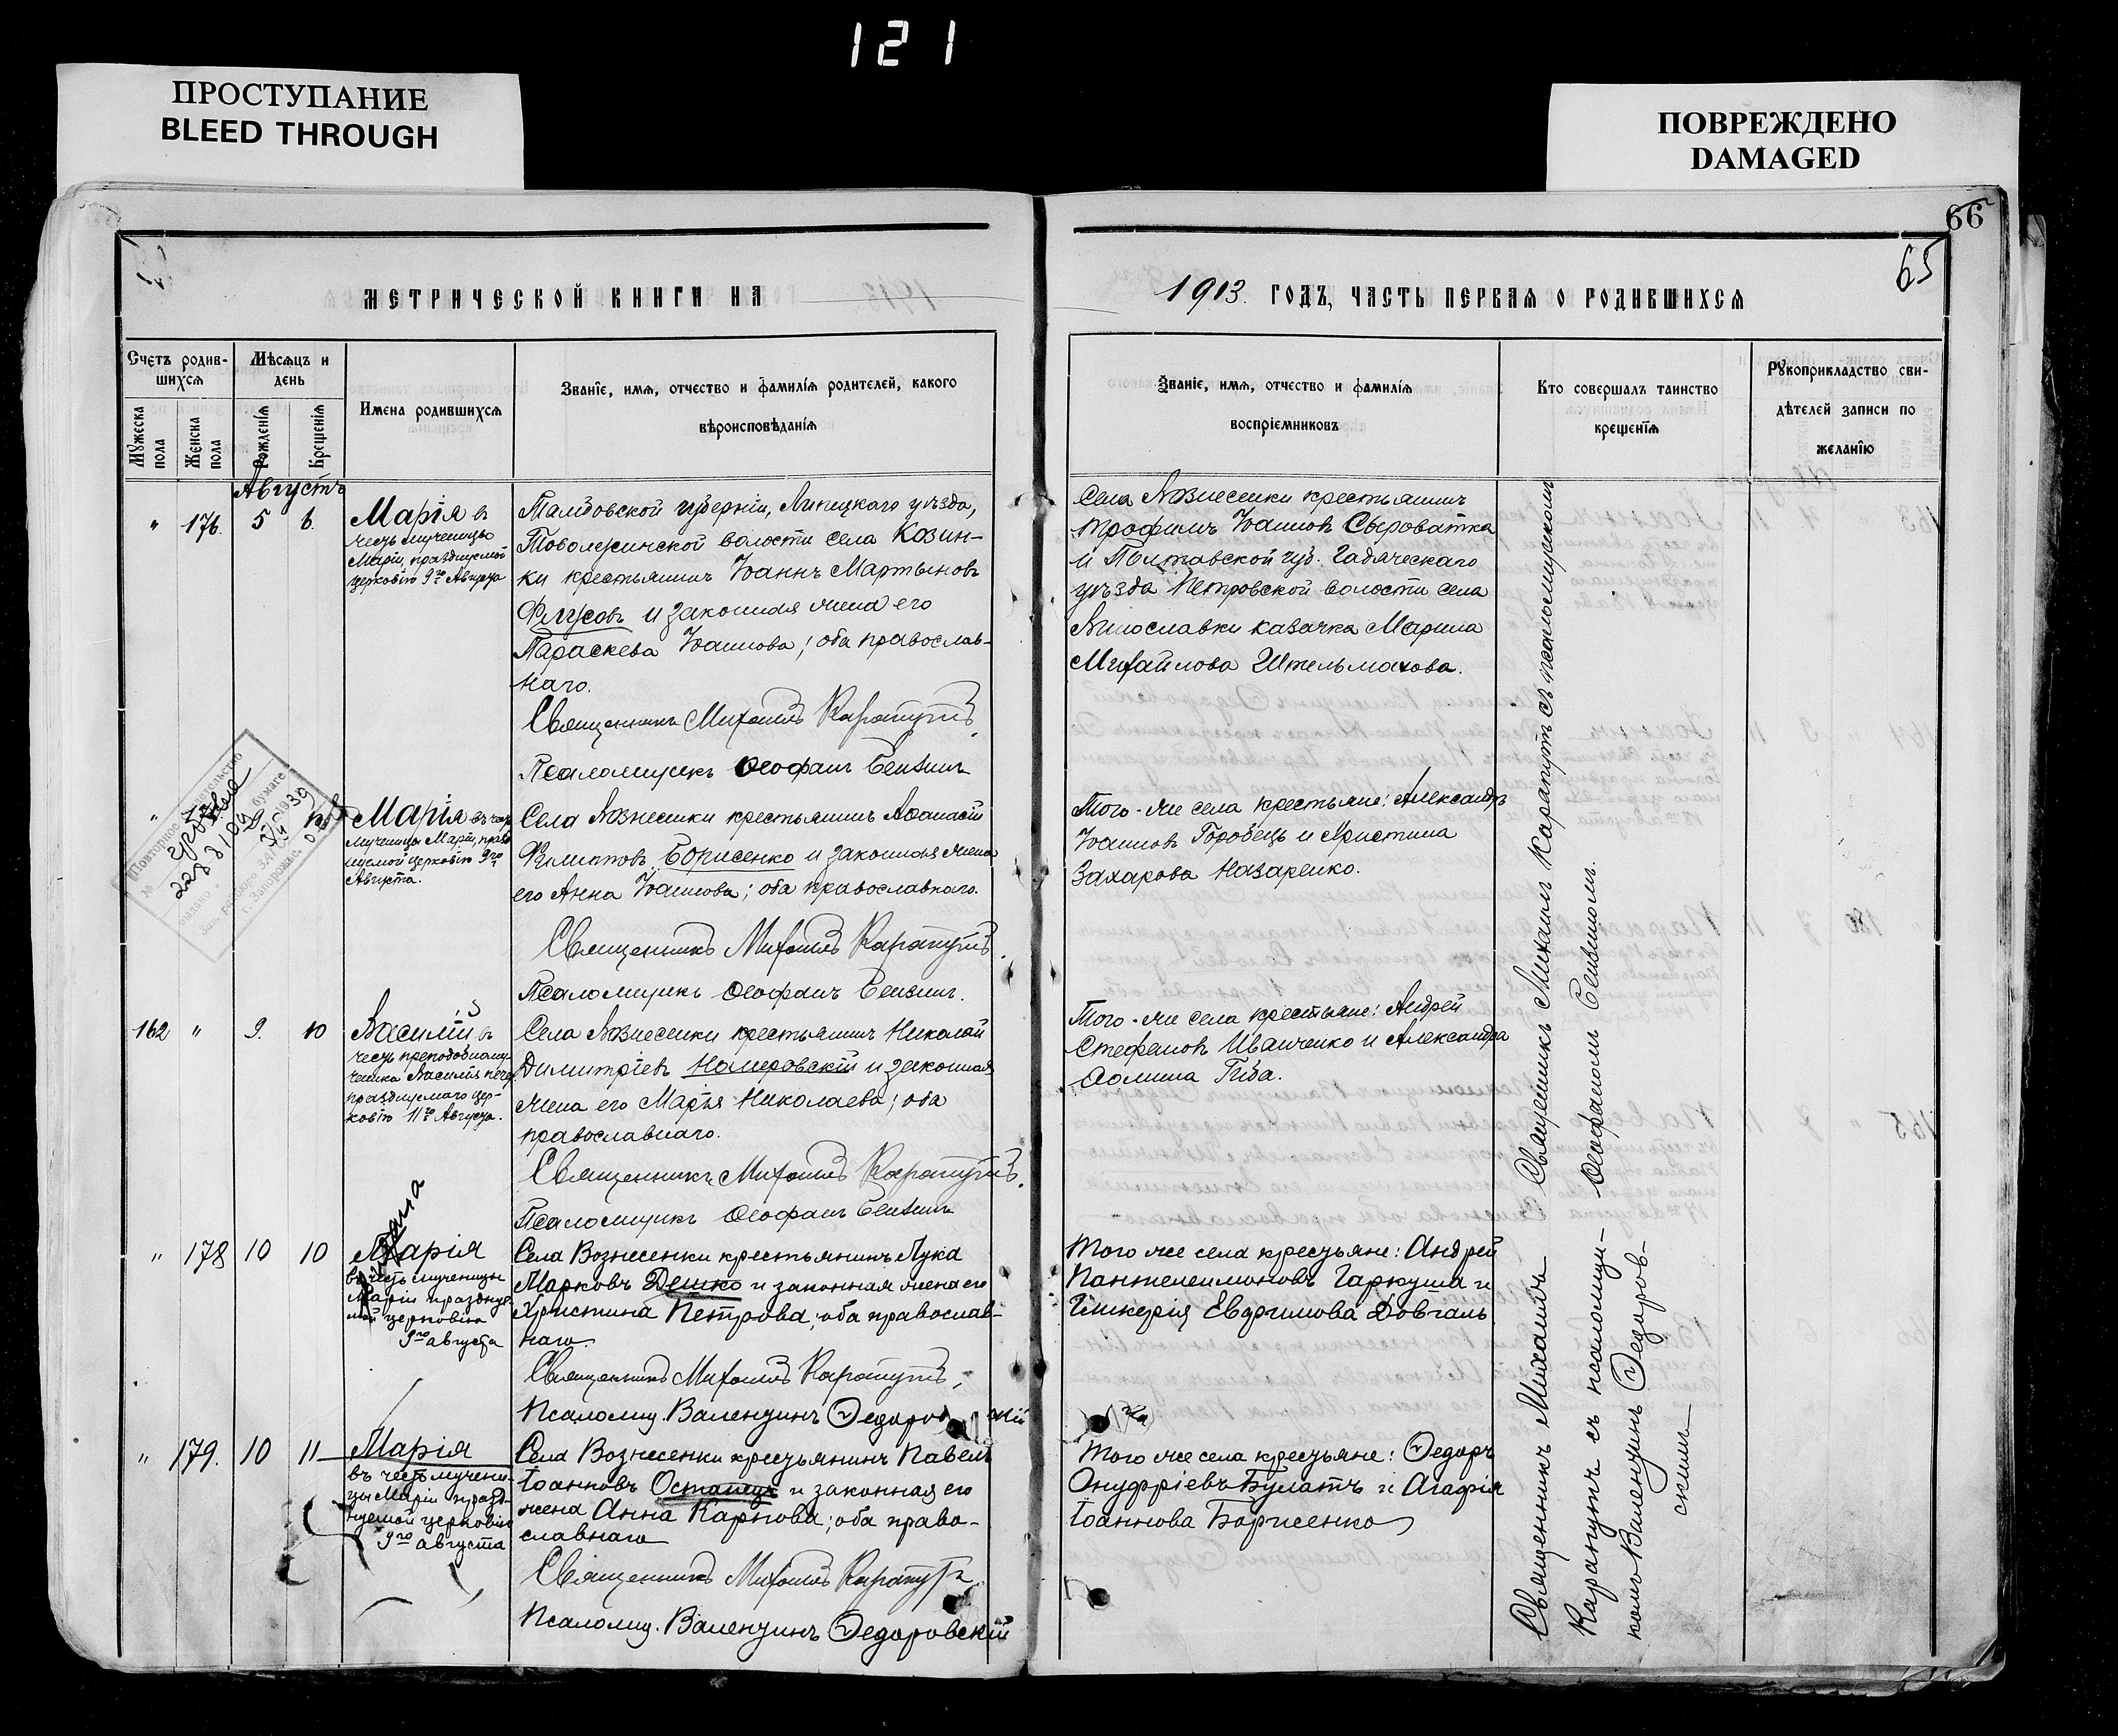 121
ПРОСТУПАНИЕ
BLEED THROUGH
ПОВРЕЖДЕНО
DAMAGED
66
65
МЕТРИЧЕСКОЙ КНИГИ НА
1913. ГОДЪ, ЧАСТЬ ПЕРВАЯ О РОДИВШИХСЯ
Счетъ родив-
шихся
Мѣсяцъ и
день
Мужеска
пола
Женска
пола
Рожденія
Крещенія
Имена родившихся
Званіе, имя, отчество и фамилія родителей, какого
вѣроисповѣданія
Званіе, имя, отчество и фамилія
воспріемниковъ
Кто совершалъ таинство
крещенія
Рукоприкладство сви-
дѣтелей записи по
желанію
Августъ
" 176. 5 6.
Марія въ
честь мученицы
Маріи, празднуемой
церковію 9го Августа
Тамбовской губерніи, Липецкаго уѣзда,
волости села Козин-
ки крестьянинъ Іоаннъ Мартыновъ
и законная жена его
Параскева Іоаннова; оба православ-
наго.
Священникъ Михаилъ Карапутъ.
Псаломщикъ Ѳеофанъ
Села Вознесенки крестьянинъ
Трофимъ Іоанновъ Сыроватка
и Полтавской губ. Гадяческаго
уѣзда Петровской волости села
казачка Марина
Михайлова Штельмахова.
Повторное
г. Запорожье
Марія въ честь
мученицы Маріи, празд-
нуемой церковію 9го
Августа.
Села Вознесенки крестьянинъ Аѳанасій
Филиповъ Борисенко и законная жена
его Анна Іоаннова; оба православнаго.
Священникъ Михаилъ Карапутъ.
Псаломщикъ Ѳеофанъ
Того-же села крестьяне: Александръ
Іоанновъ Горобецъ и Христина
Захарова Назаренко.
162 " 9. 10
Василій въ
честь преподобному-
ченика Василія
празднуемаго цер-
ковію 11го Августа.
Села Вознесенки крестьянинъ Николай
Димитріевъ и законная
жена его Марія Николаева; оба
православнаго.
Священникъ Михаилъ Карапутъ.
Псаломщикъ Ѳеофанъ
Того-же села крестьяне: Андрей
Стефановъ Иванченко и Александра
Гиба.
" 178 10 10
Марія
въ честь мученицы
Маріи празднуе-
мой церковію
9го августа
Села Вознесенки крестьянинъ Лука
Марковъ Дешко и законная жена его
Христина Петрова; оба православ-
наго.
Священникъ Михаилъ Карапутъ.
Псаломщ. Валентинъ
Того же села крестьяне: Андрей
Пантелеимоновъ Гаркуша и
Гликерія Евфимова Довгаль
" 179. 10 11
Марія
въ честь мучени-
цы Маріи празд-
нуемой церковію
9го августа
Села Вознесенки крестьянинъ Павелъ
Іоанновъ Остапецъ и законная его
жена Анна Карпова; оба право-
славнаго
Священникъ Михаилъ Карапутъ.
Псаломщ. Валентинъ Ѳедоровскій
Того же села крестьяне: Ѳедоръ
Онуфріевъ Булатъ и Агафія
Іоаннова Борисенко
Священникъ Михаилъ Карапутъ съ псаломщикомъ
Ѳеофаномъ
Священникъ Михаилъ
Карапутъ съ псаломщи-
комъ Валентинъ Ѳедоров-
скимъ